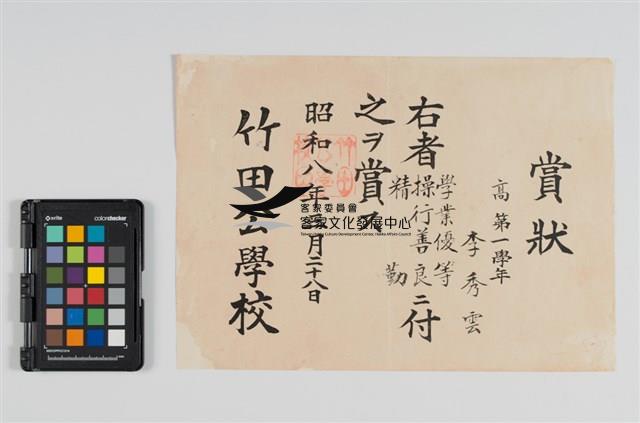 賞狀
高 第一學年
李秀雲
右者
學業優等
操行善良
精勤
ニ付
之ヲ賞ス
昭和八年 月二十八日
竹田公學校
客家委員會
客家文化發展中心
Taiwan Hakka Culture Development Center, Hakka Affairs Council
x-rite
colorchecker